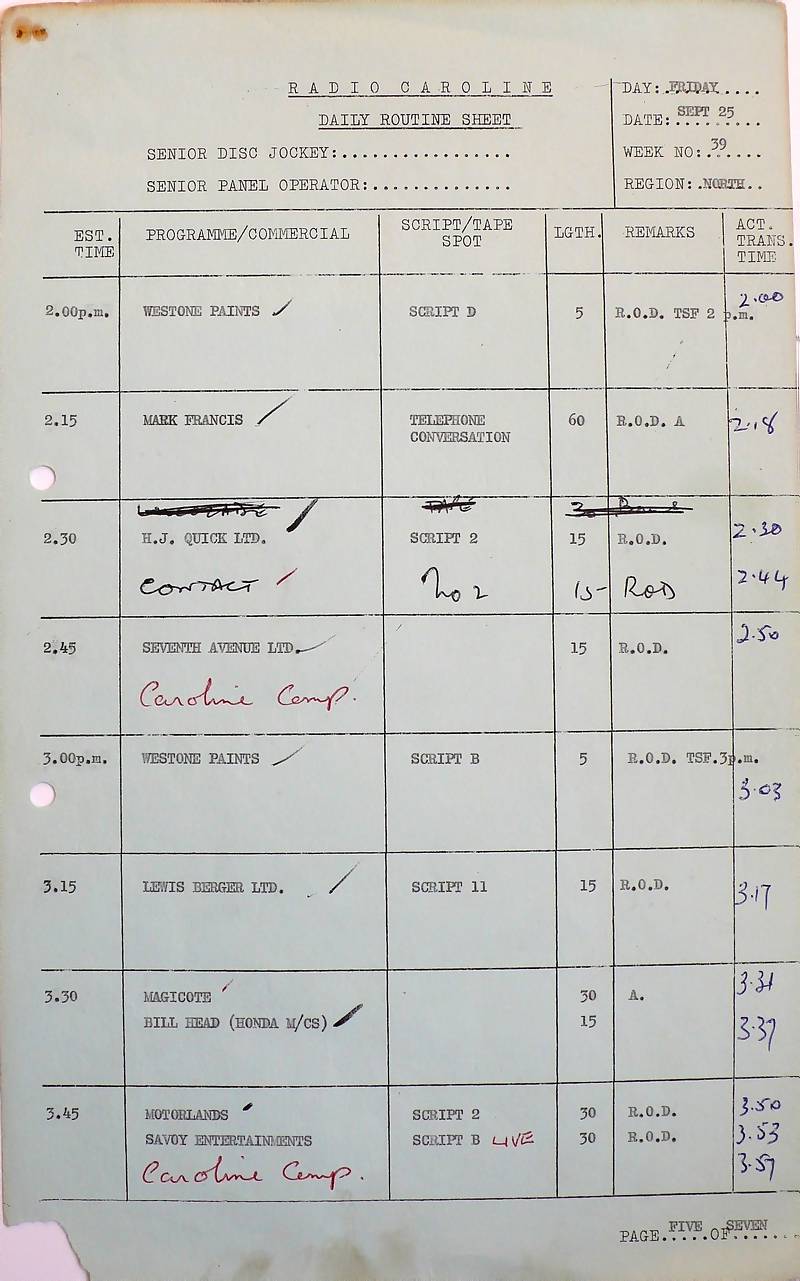 RADIO CAROLINE
DAILY ROUTINE SHEET
SENIOR DISC JOCKEY:.................
SENIOR PANEL OPERATOR:..............
DAY: FRIDAY....
DATE: SEPT 25
WEEK NO: 39
REGION: .NORTH..
EST. TIME PROGRAMME/COMMERCIAL SCRIPT/TAPE SPOT LGTH. REMARKS ACT. TRANS. TIME
2.00p.m. WESTONE PAINTS SCRIPT D 5 R.O.D. TSF 2 p.m. 2.00
2.15 MARK FRANCIS TELEPHONE CONVERSATION 60 R.O.D. A 2.18
TAPE 30
2.30 H.J. QUICK LTD. SCRIPT 2 15 R.O.D. 2.30
CONTACT No 2 15- ROD 2.44
2.45 SEVENTH AVENUE LTD. 15 R.O.D. 2.50
Caroline Comp.
3.00p.m. WESTONE PAINTS SCRIPT B 5 R.O.D. TSF.3p.m. 3.03
3.15 LEWIS BERGER LTD. SCRIPT 11 15 R.O.D. 3.17
3.30 MAGICOTE 30 A. 3.31
BILL HEAD (HONDA M/CS) 15 3.37
3.45 MOTORLANDS SCRIPT 2 30 R.O.D. 3.50
SAVOY ENTERTAINMENTS SCRIPT B LIVE 30 R.O.D. 3.53
Caroline Comp. 3.57
PAGE FIVE OF SEVEN